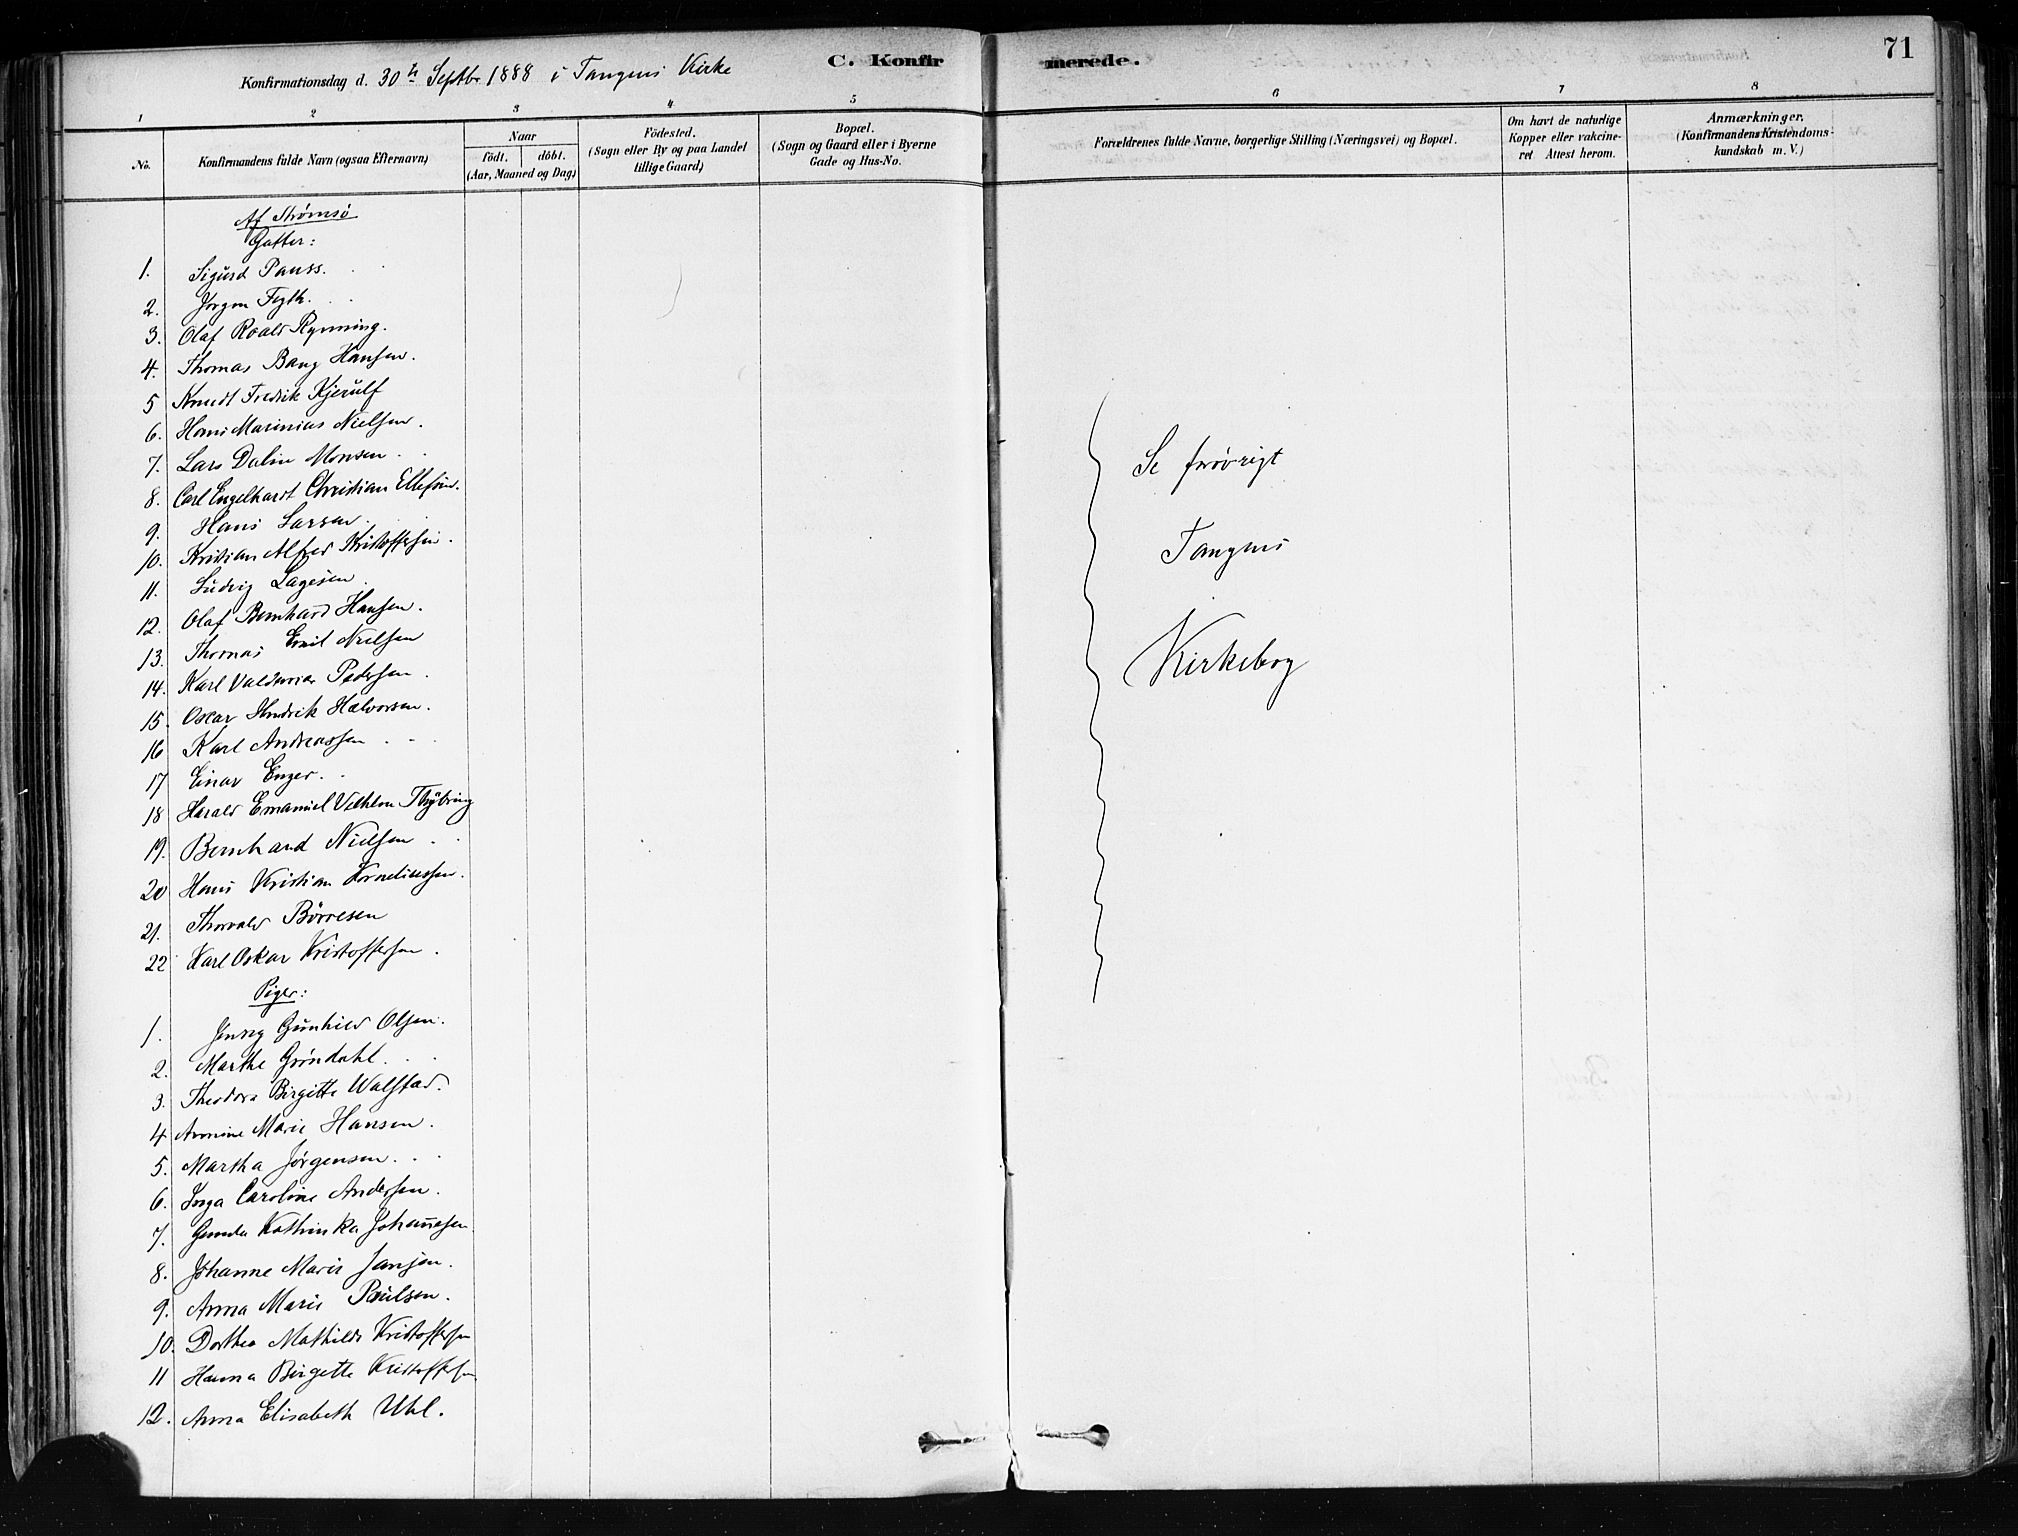 71
Konfirmationsdag d. 30te Septbr 1888 i Tangens Kirke
C. Konfirmerede.
1 2 3 4 5 6 7 8
No.
Konfirmandens fulde Navn (ogsaa Efternavn)
Naar
födt. döbt.
(Aar, Maaned og Dag)
Födested.
(Sogn eller By og paa Landet
tillige Gaard)
Bopæl.
(Sogn og Gaard eller i Byerne
Gade og Hus-No.
Forældrenes fulde Navne, borgerlige Stilling (Næringsvei) og Bopæl.
Om havt de naturlige
Kopper eller vakcine-
ret Attest herom.
Anmærkninger.
(Konfirmandens Kristendoms-
kundskab m. V.)
Af Strømsø
Gutter:
1. Sigurd Pauss.
2. Jørgen Fegth.
3. Olaf Roald Rynning.
4. Thomas Bang Hansen.
5 Knudt Fredrik Kjerulf
6. Hans Marinius Nielsen.
7. Lars Dalin Monsen.
8. Carl Engelhardt Christian Ellefsen.
9. Hans Larsen.
10. Kristian Alfred Kristoffersen.
11. Ludvig Lagesen.
12. Olaf Bernhard Hansen.
13. Thomas Emil Nielsen
14. Karl Valdemar Pedersen.
15. Oscar Hendrik Halvorsen.
16 Karl Andreassen
17 Einar Enger.
18 Harald Emanuel Thybring
19. Bernhard Nielsen
20 Hans Kristian Korneliussen.
21. Thorvald Börresen
22 Karl Oskar Kristoffersen.
Piger:
1. Jenny Gunhild Olsen.
2. Marthe Gröndahl.
3. Theodora Birgitte Walstad.
4 Annine Marie Hansen.
5. Martha Jörgensen.
6. Inga Caroline Andersen.
7. Gunda Kathinka Johannesen
8. Johanne Marie Jansen.
9. Anna Marie Paulsen.
10. Dorthea Mathilde Kristoffersen
11 Hanna Birgette Kristoffersen
12. Anna Elisabeth Uhl.
Se forøvrigt
Tangens
Kirkebog